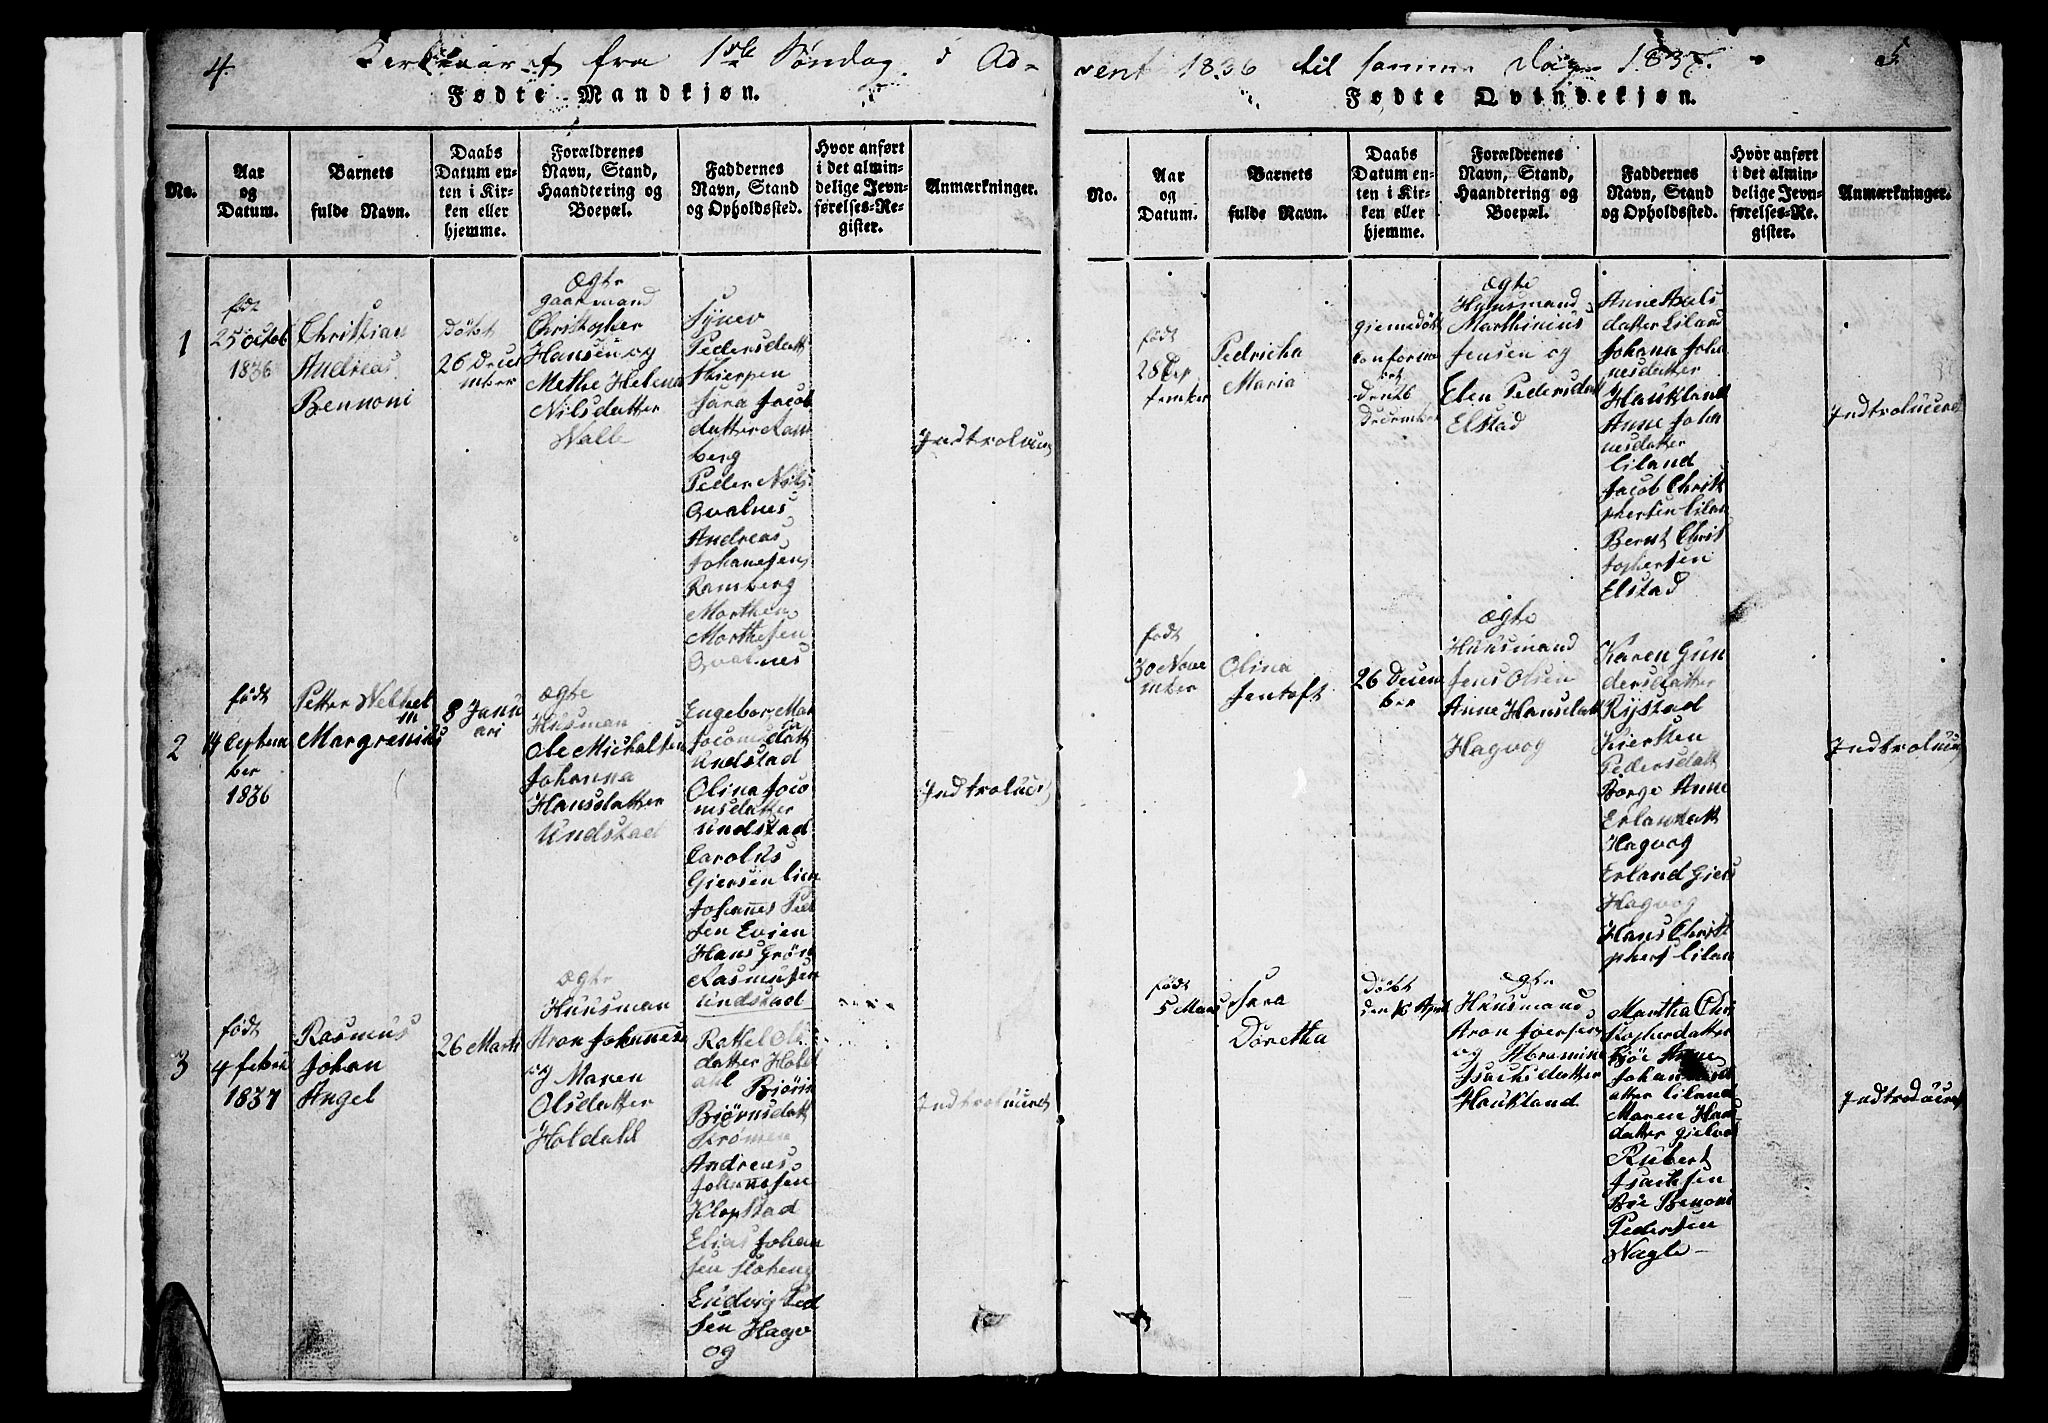 4.
Kirkeaaret fra 1ste Søndag i Ad-
Fødte Mandkjøn.
No.
Aar
og
Datum.
Barnets
fulde Navn.
Daabs
Datum en-
ten i Kir-
ken eller
hjemme.
Forældrenes
Navn, Stand,
Haandtering og
Boepæl.
Faddernes
Navn, Stand
og Opholdssted.
Hvor anført
i det almin-
delige Jevn-
førelses-Re-
gister.
Anmærkninger.
1
født
25 Octob
1836
Christian
Andreas
Bennoni
Døbt
26 Dece
mber
Ægte
gaarmand
Christopher
Hansen og
Methe Helena
Nilsdatter
Valle
Synev
Pedersdatt
Skierpen
Sara Jacob
datter Ram
berg
Peder Nils
Qvalnes
Andreas
Johanesen
Ramberg
Morthen
Morthesen
Qvalnes
Indtroluceret
2
født
14 Septem
ber
1836
Petter Velhel
m
Margrenius
8 Janu
ari
Ægte
Husman
Ole Michalsen
Johanna
Hansdatter
Undstad
Ingebor Mar
Jocomsdatt
Undstad
Olina Joco
msdatter
Undstad
Carolus
Giersen
Johannes Ped
sen Evjen
Hans Grön
Rasmusen
Undstad
Indtroluceret
3
født
4 febru
1837
Rasmus
Johan
Angel
26 Marti
Ægte
Huusman
Aron Johannese
og Maren
Olsdatter
Holdahl
Ols
datter Hold
ahl Bjørin
Bjørnsdatt
Strømen
Andreas
Johannesen
Klopstad
Elias Johan
sen
Ludvig Ped
sen Hagv
og
Indtroluceret
5
vent 1836 til samme Dag 1837.
Fødte Qvindekjøn.
No.
Aar
og
Datum.
Barnets
fulde Navn.
Daabs
Datum en-
ten i Kir-
ken eller
hjemme.
Forældrenes
Navn, Stand,
Haandtering og
Boepæl.
Faddernes
Navn, Stand
og Opholdssted.
Hvor anført
i det almin-
delige Jevn-
førelses-Re.
gister.
Anmærkninger.
født
28 Sep
tember
Pedricha
Maria
giemedøbt
Conforme
ert
den 26
December
Ægte
Huusmand
Marthinius
Jensen og
Elen Pedersdatt
Elstad
Anne Axels
datter Liland
Johana Joha
nesdatter
Haukland
Anne Joha
nesdatter
Liland
Jacob Christ
phersen Lilan
Bernt Christ
tophersen
Elstad
Indtroluceret
født
30 Nove
mber
Olina
Jentoft
26 Decem
ber
Ægte
Huusmand
Jens Olsen
Anne Hansdatt
Hagvog
Karen Gun
dersdatter
Rystad
Kiersten
Pedersdatt
Borge Anne
Erlandatt
Hagvog
Erland Giers
Hagvog
Hans Christ
phers Lilan
Indtroluceret
født
5 Mars
Sara
Doretha
Døbt
den 16 April
Ægte
Huusmand
Aron Joersen
og Abremine
Isachsdatter
Haukland
Martha Chri
stopherdatter
Bøe Anne
Johannesd
atter Liland
Maren Han
datter
Rubert
Isachsen
Bøe Benoni
Pedersen
Nagle
Indtroduceret